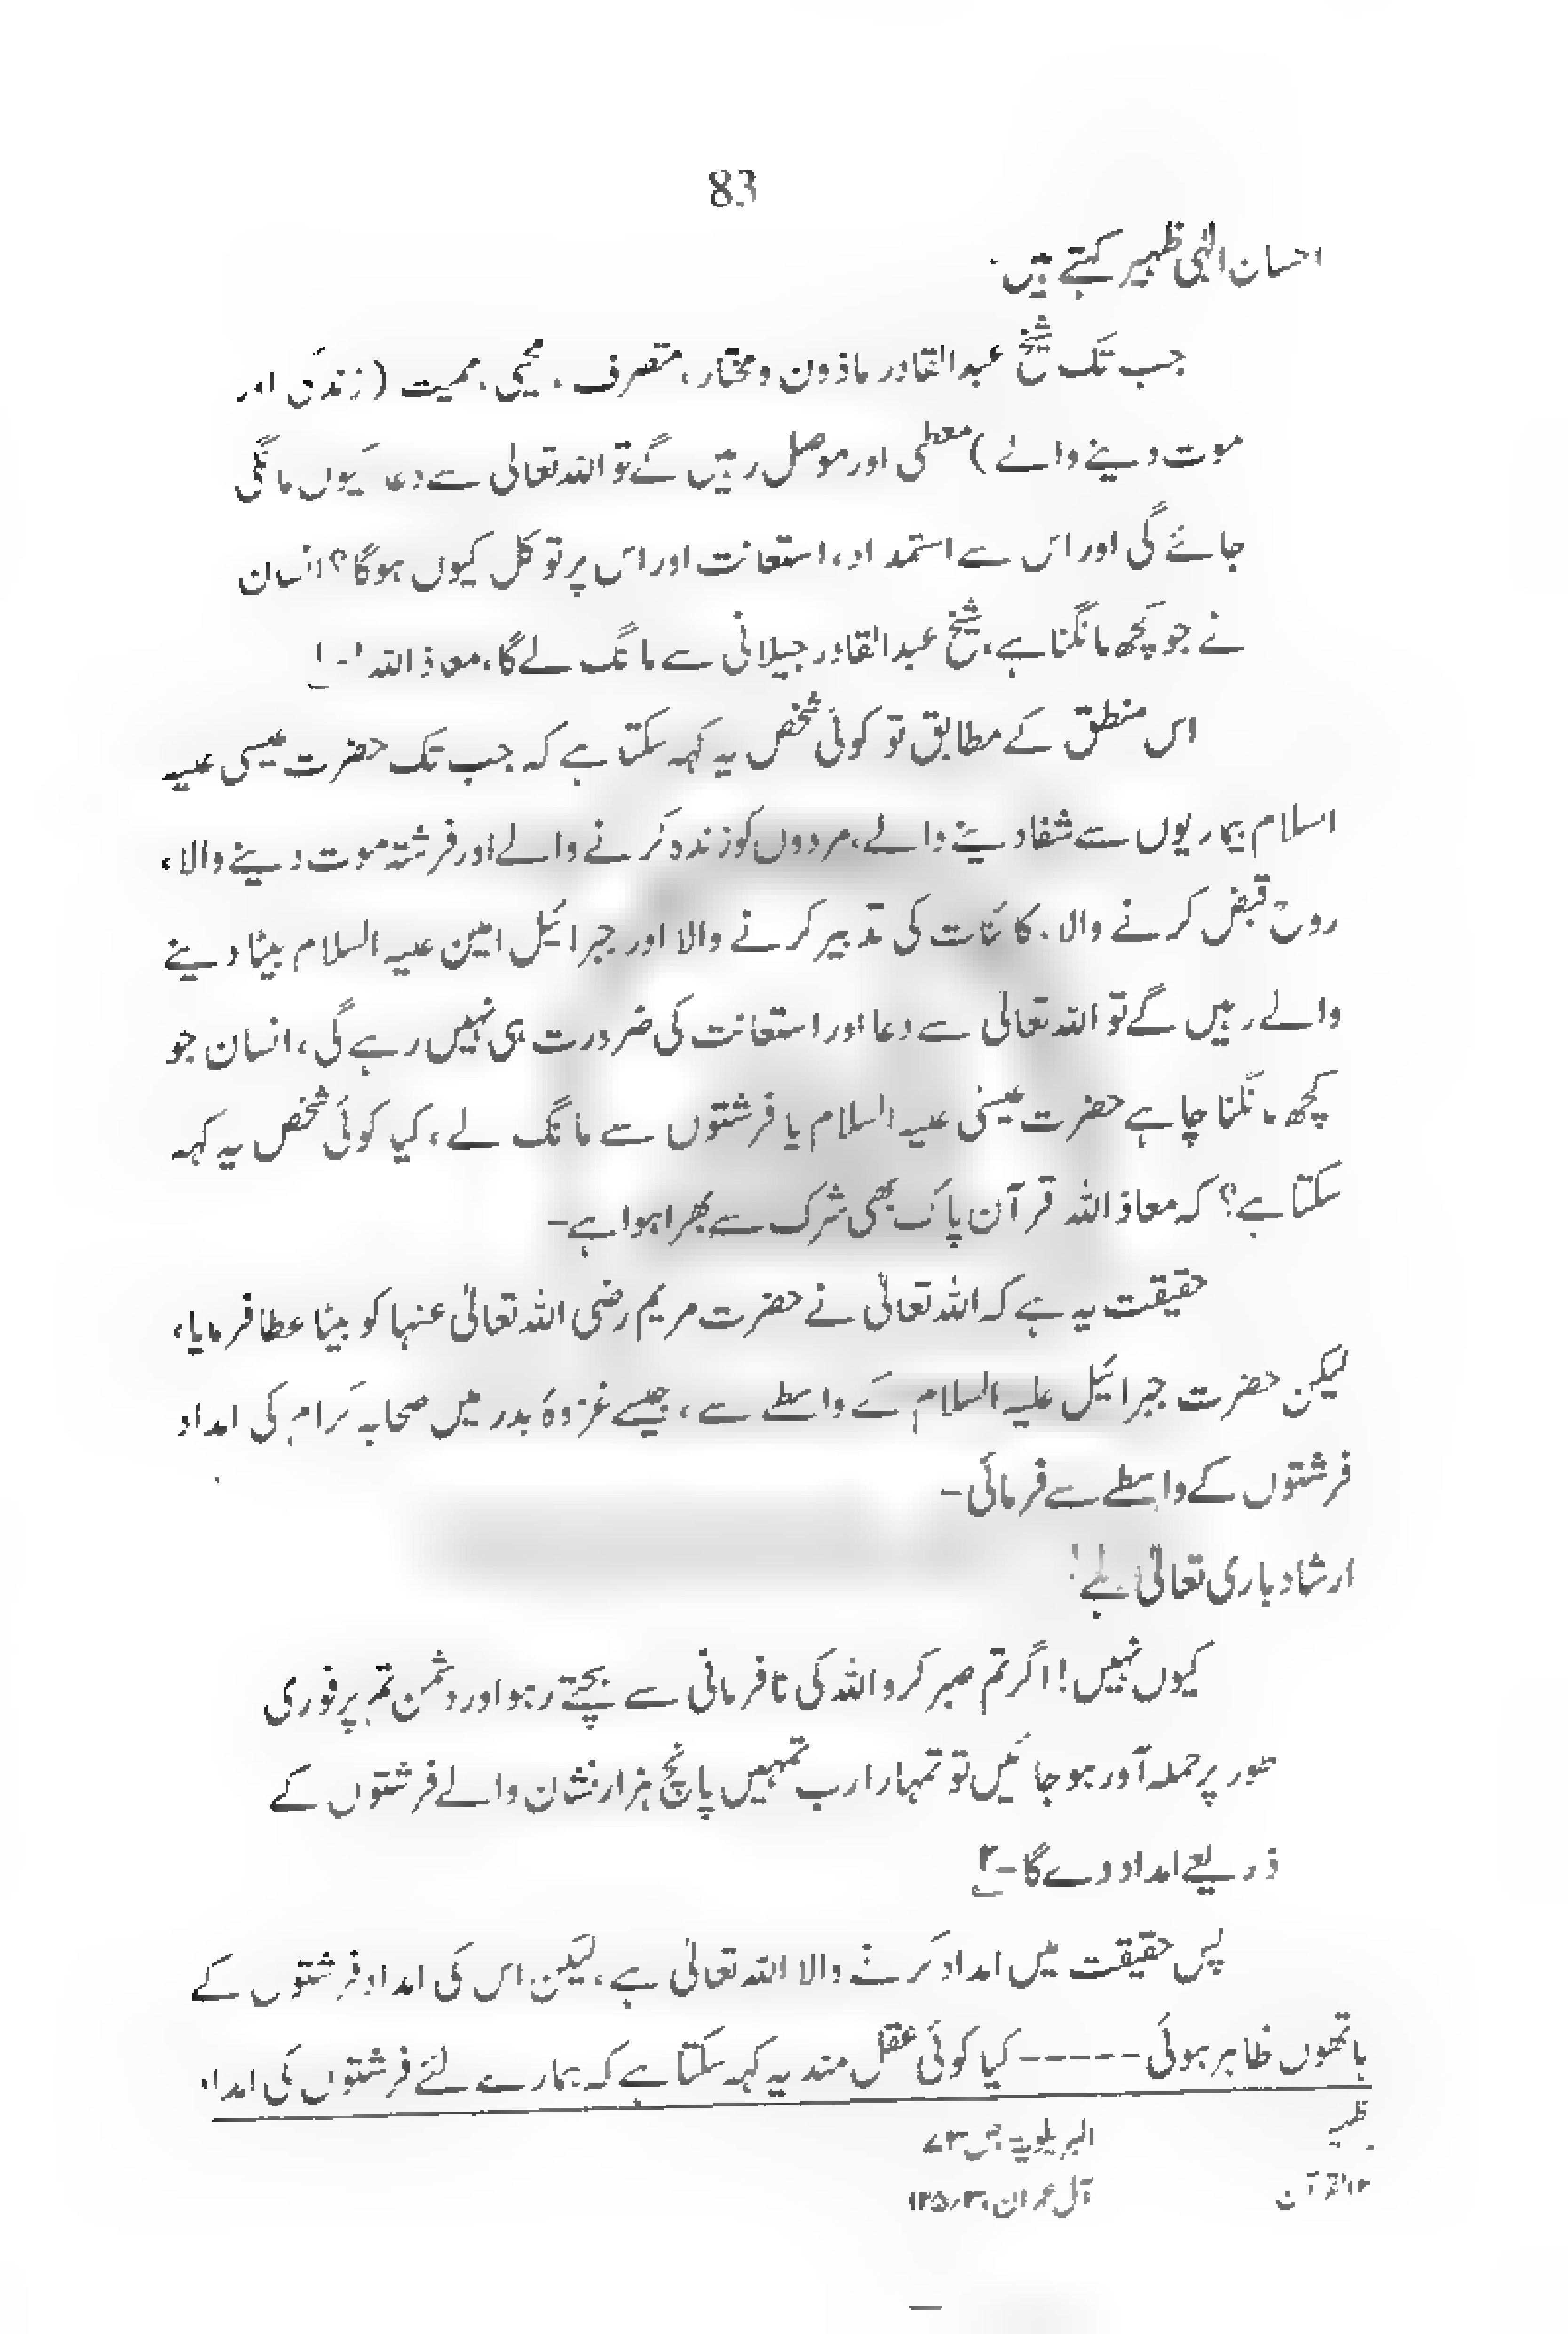 83
احسان الٰہی ظہیر کہتے ہیں۔
جب تک شیخ عبدالقادر ماذون و مختار، متصرف، محیی، ممیت (زندگی اور
موت دینے والے) معطی اور موصل رہیں گے تو اللہ تعالیٰ سے دعا کیوں مانگی
جائے گی اور اس سے استمداد، استعانت اور اس پر توکل کیوں ہوگا؟ انسان
نے جو کچھ مانگنا ہے، شیخ عبدالقادر جیلانی سے مانگ لے گا، معاذ اللہ!-۱
اس منطق کے مطابق تو کوئی شخص یہ کہہ سکتا ہے کہ جب تک حضرت عیسیٰ علیہ
السلام بیماریوں سے شفا دینے والے، مردوں کو زندہ کرنے والے اور فرشتہ موت دینے والا،
روح قبض کرنے والا، کائنات کی تدبیر کرنے والا اور جبرائیل امین علیہ السلام بیٹا دینے
والے رہیں گے تو اللہ تعالیٰ سے دعا اور استعانت کی ضرورت ہی نہیں رہے گی، انسان جو
کچھ مانگنا چاہے حضرت عیسیٰ علیہ السلام یا فرشتوں سے مانگ لے، کیا کوئی شخص یہ کہہ
سکتا ہے؟ کہ معاذ اللہ قرآن پاک بھی شرک سے بھرا ہوا ہے-
حقیقت یہ ہے کہ اللہ تعالیٰ نے حضرت مریم رضی اللہ تعالیٰ عنہا کو بیٹا عطا فرمایا،
لیکن حضرت جبرائیل علیہ السلام کے واسطے سے، جیسے غزوۂ بدر میں صحابہ کرام کی امداد
فرشتوں کے واسطے سے فرمائی-
ارشاد باری تعالیٰ ہے!
کیوں نہیں! اگر تم صبر کرو اللہ کی نافرمانی سے بچتے رہو اور دشمن تم پر فوری
طور پر حملہ آور ہو جائیں تو تمہارا رب تمہیں پانچ ہزار نشان والے فرشتوں کے
ذریعے امداد دے گا-۲
پس حقیقت میں امداد کرنے والا اللہ تعالیٰ ہے، لیکن اس کی امداد فرشتوں کے
ہاتھوں ظاہر ہوئی----- کیا کوئی عقل مند یہ کہہ سکتا ہے کہ ہمارے لئے فرشتوں کی امداد
ظہیر البریلویہ، ص ۷۳
۲-القرآن آل عمران، ۳/۱۲۵